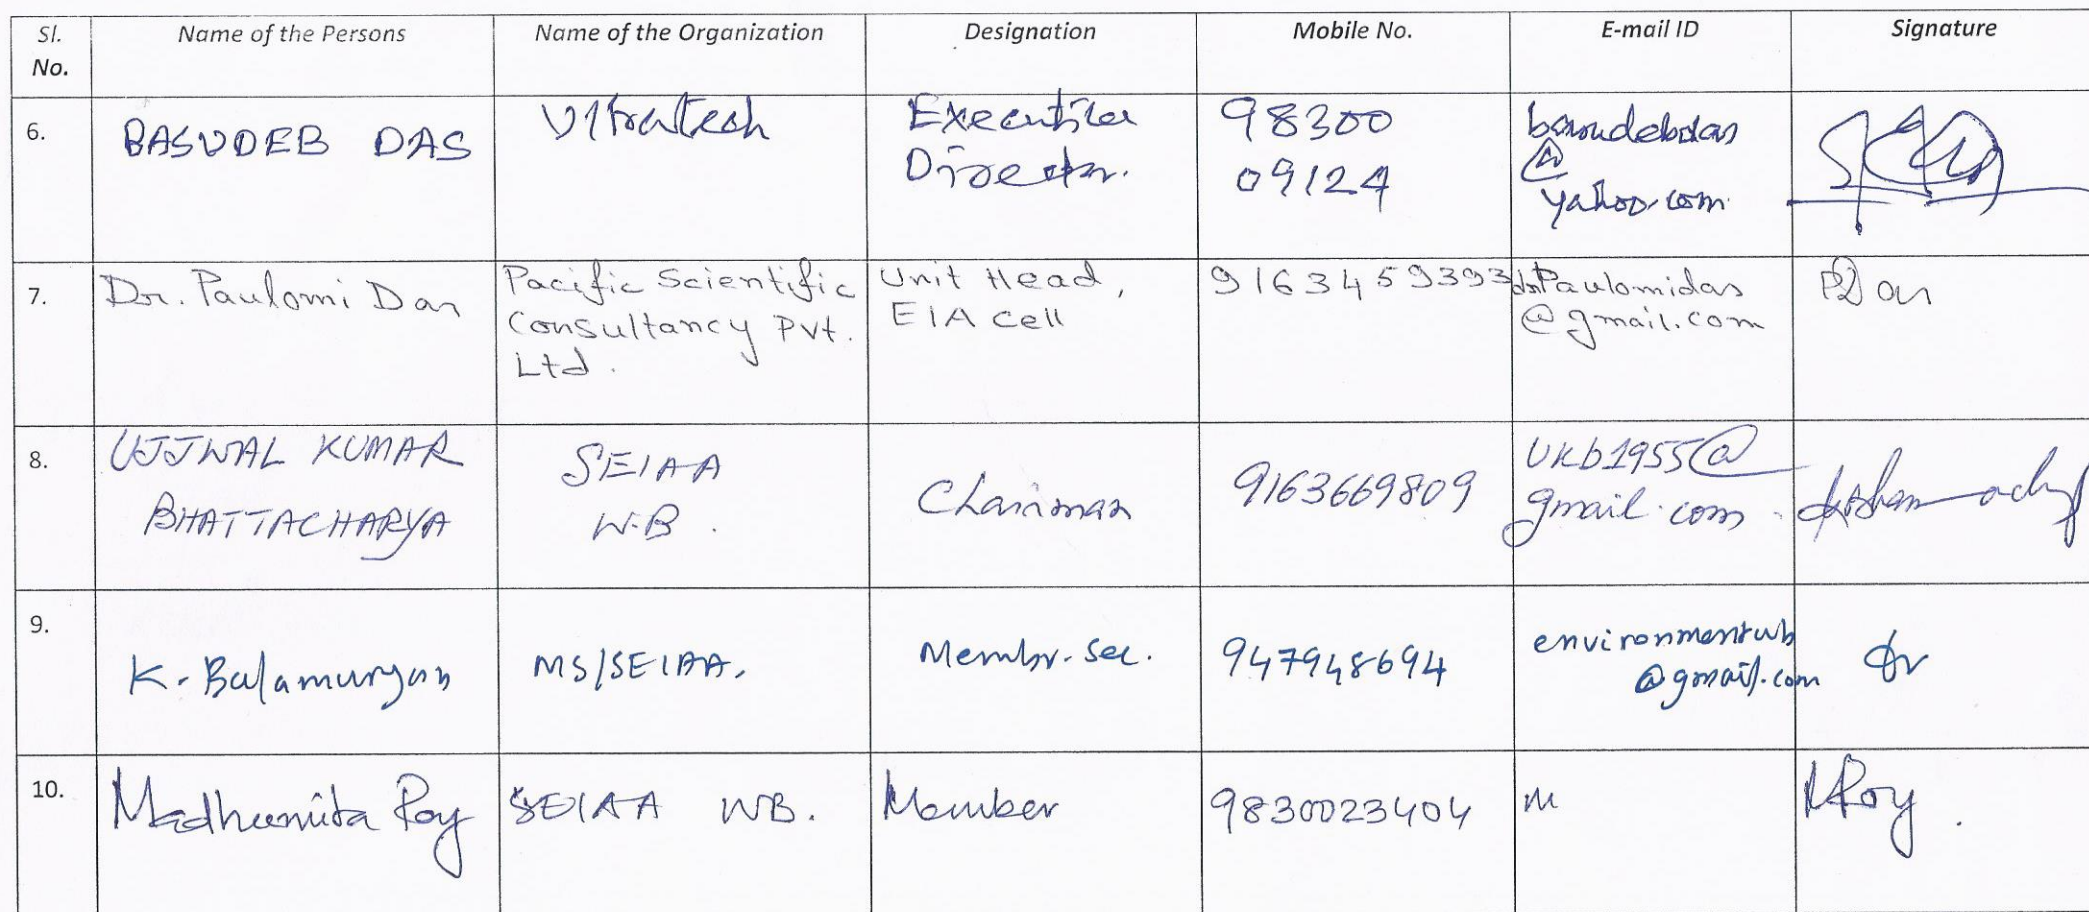 Sl. No. Name of the Persons Name of the Organization Designation Mobile No. E-mail ID Signature
6. BASUDEB DAS Ultratech Executive Director. 98300 09124 basudebdas @ yahoo.com
7. Dr. Paulomi Das Pacific Scientific Consultancy Pvt. Ltd. Unit Head, EIA Cell 9163459393 drpaulomidas @gmail.com PDas
8. UJJWAL KUMAR BHATTACHARYA SEIAA W.B. Chairman 9163669809 Ukb1955@ gmail.com
9. K. Balamurugan MS/SEIAA. Membr. Sec. 947948694 environmentwb @gmail.com
10. Madhumita Roy SEIAA WB. Member 9830023404 m MRoy.